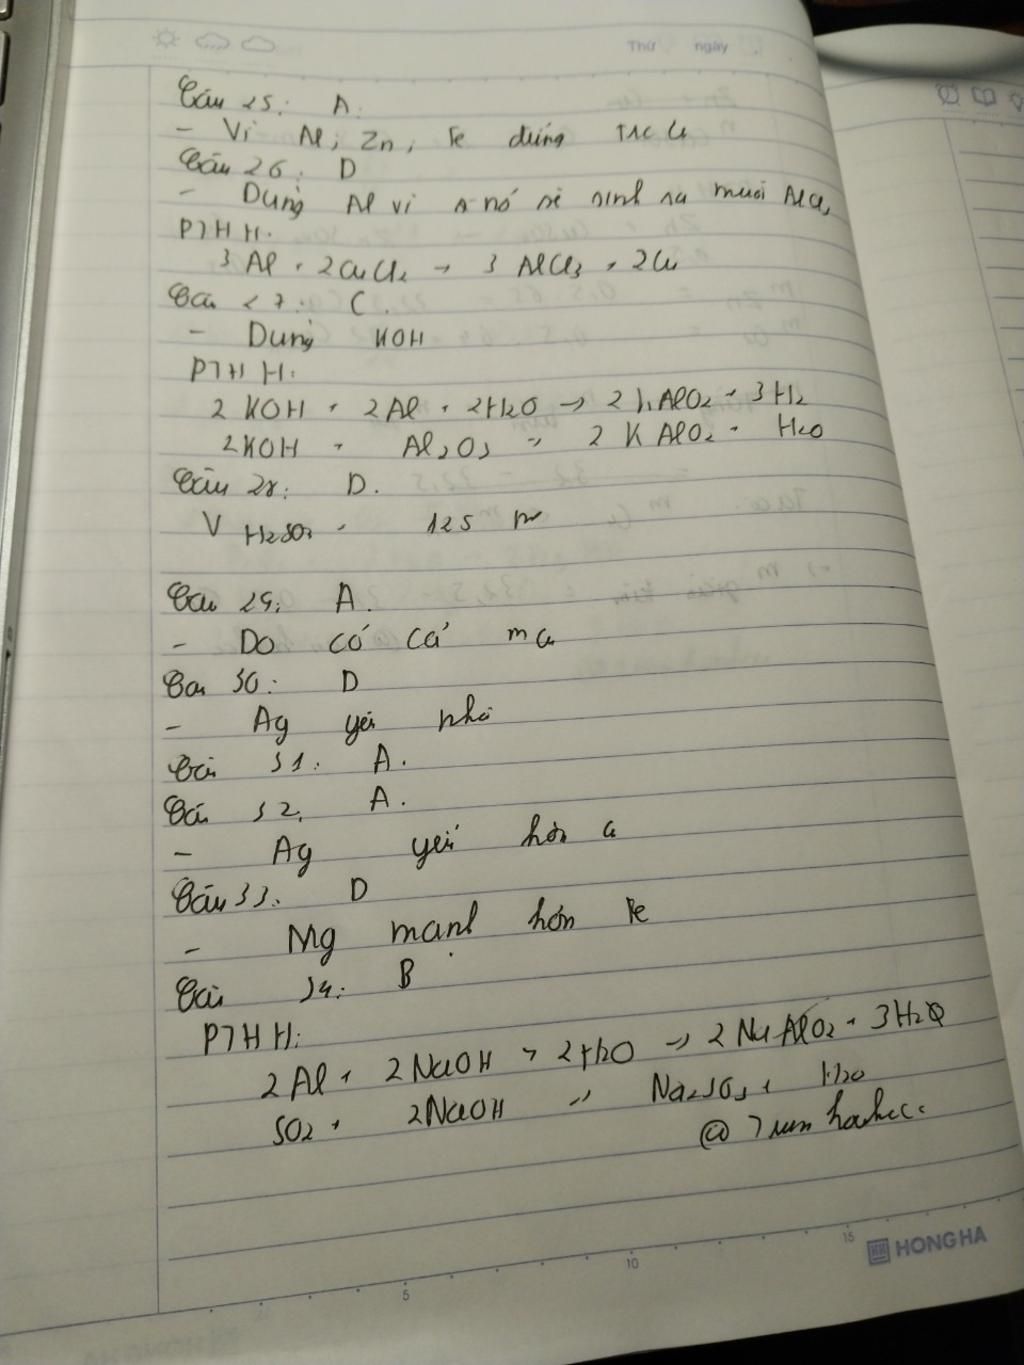 Thứ ngày
Câu 25: A.
- Vì Al; Zn; Fe đứng trc Cu
Câu 26: D
- Dùng Al vì nó sẽ sinh ra muối AlCl3
PTHH:
3Al + 2CuCl2 → 3AlCl3 + 2Cu
Câu 27: C.
- Dùng KOH
PTHH:
2KOH + 2Al + 2H2O → 2KAlO2 + 3H2
2KOH + Al2O3 → 2KAlO2 + H2O
Câu 28: D.
V 125
Câu 29: A.
- Do có cả
Câu 30: D
- Ag yếu nhất
Câu 31: A.
Câu 32. A.
- Ag yếu hơn Cu
Câu 33. D
- Mg mạnh hơn Fe
Câu 34: B
PTHH:
2Al + 2NaOH + 2H2O → 2NaAlO2 + 3H2
SO2 + 2NaOH → Na2SO3 + H2O
5 10 15
HONG HA